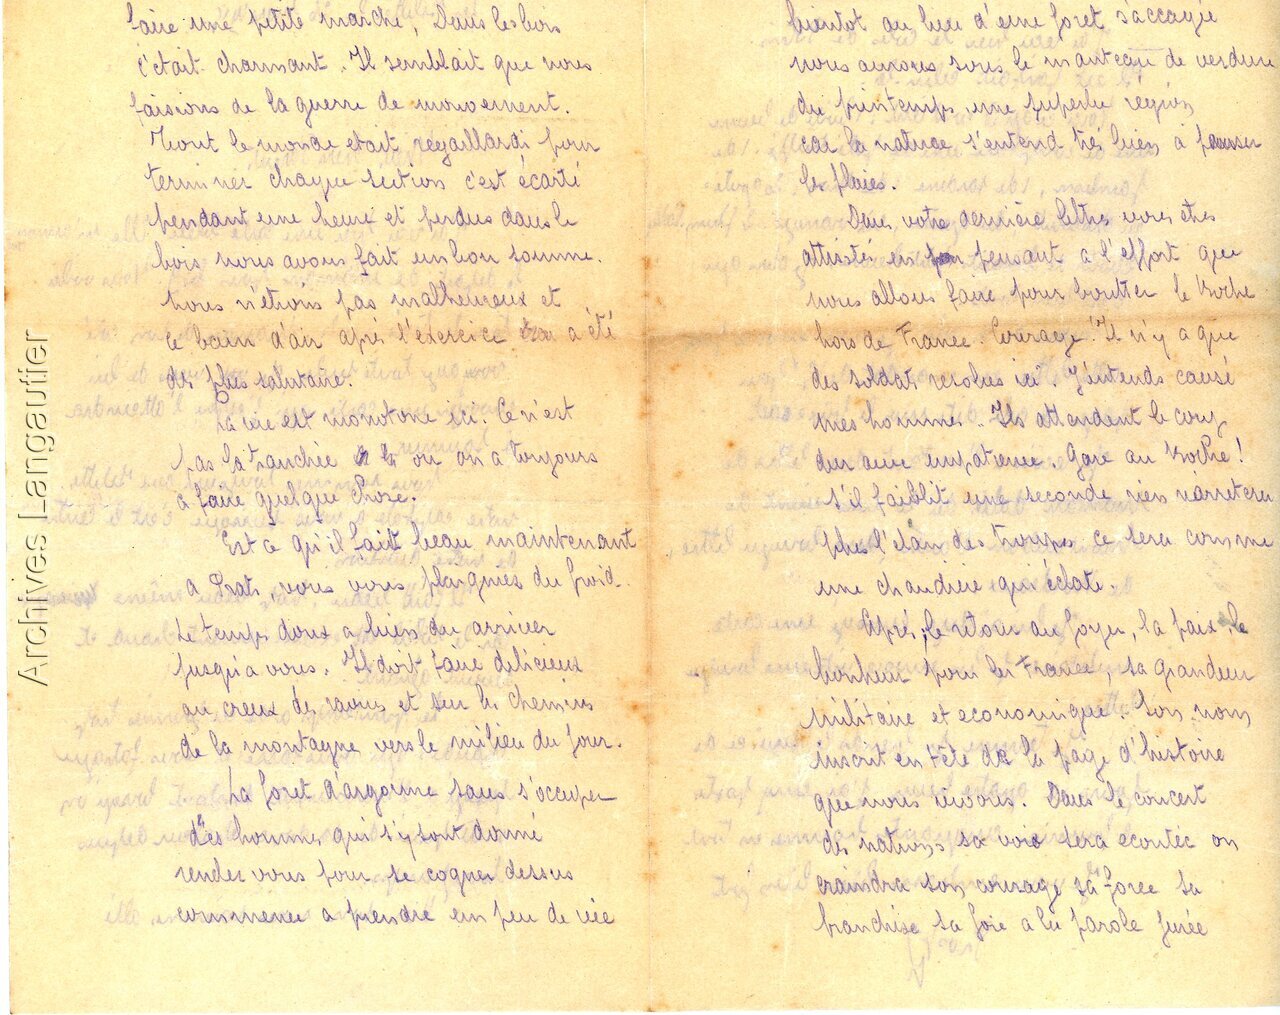 faire une petite marche, Dans les bois
c'était charmant. Il semblait que nous
faisions de la guerre de mouvement.
Tout le monde etait regaillardi pour
terminer chaque section c'est écarté
pendant une heure et perdus dans le
bois nous avons fait un bon somme.
Nous n'étions pas malheureux et
ce bain d'air après l'exercice a été
des plus salutaire.
La vie est monotone ici. Ce n'est
pas la tranchée où on a toujours
a faire quelque chose.
Est ce qu'il fait beau maintenant
a Prats, vous vous plaigniez du froid.
Le temps doux a bien du arriver
jusqu'a vous. Il doit faire délicieux
au creux des ravins et sur les chemins
de la montagne vers le milieu du jour.
La foret d'argonne sans s'occuper
des hommes qui s'y sont donné
rendez vous pour se cogner dessus
commence a prendre un peu de vie
bientot au lieu d'une foret saccagée
nous aurons sous le manteau de verdure
du printemps une superbe region
car la nature s'entend très bien a panser
les plaies.
Dans votre dernière lettre vous êtes
attristés en pensant a l'effort que
nous allons faire pour boutter le Boche
hors de France. Courage! Il n'y a que
des soldats resolus ici. J'entends causé
mes hommes. Ils attendent le coup
dur avec impatience Gare au Boche!
s'il faiblit une seconde rien n'arretera
plus l'élan des troupes ce sera comme
une chaudière qui éclate.
Après, le retour au foyer, la paix, le
bonheur pour la France, sa grandeur
militaire et economique. Son nom
inscrit en tête de la page d'histoire
que nous vivons. Dans le concert
des nations sa voix sera ecoutée on
craindra son courage sa force sa
franchise sa foie a la parole jurée
Archives Langautier